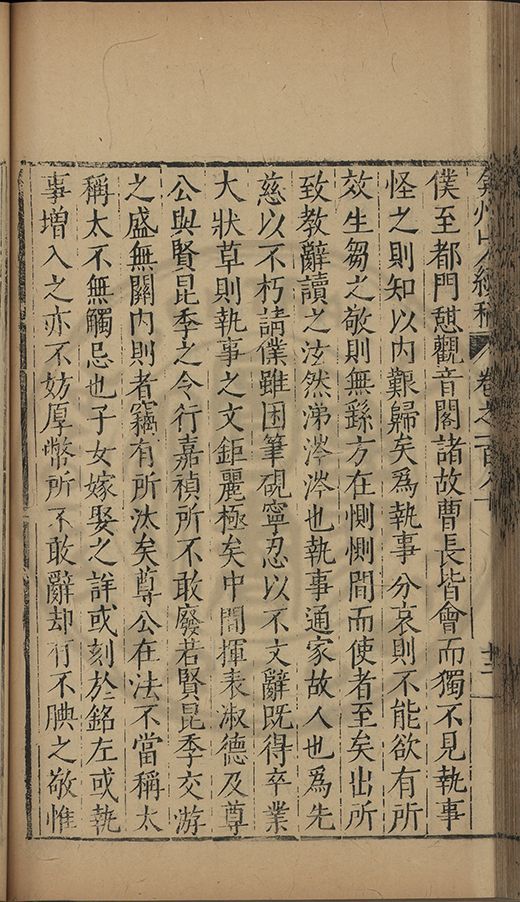 弇州山人續稿 卷之一百八十 十二
僕至都門憇觀音閣諸故曹長皆會而獨不見執事
怪之則知以内艱歸矣爲執事分哀則不能欲有所
效生芻之敬則無繇方在惻惻間而使者至矣出所
致教辭讀之泫然涕涔涔也執事通家故人也爲先
慈以不朽請僕雖困筆硯寧忍以不文辭既得卒業
大狀草則執事之文鉅麗極矣中間揮表淑德及尊
公與賢昆季之令行嘉禎所不敢廢若賢昆季交游
之盛無關内則者竊有所汰矣尊公在法不當稱太
稱太不無觸忌也子女嫁娶之詳或刻於銘左或執
事增入之亦不妨厚幣所不敢辭却行不腆之敬惟